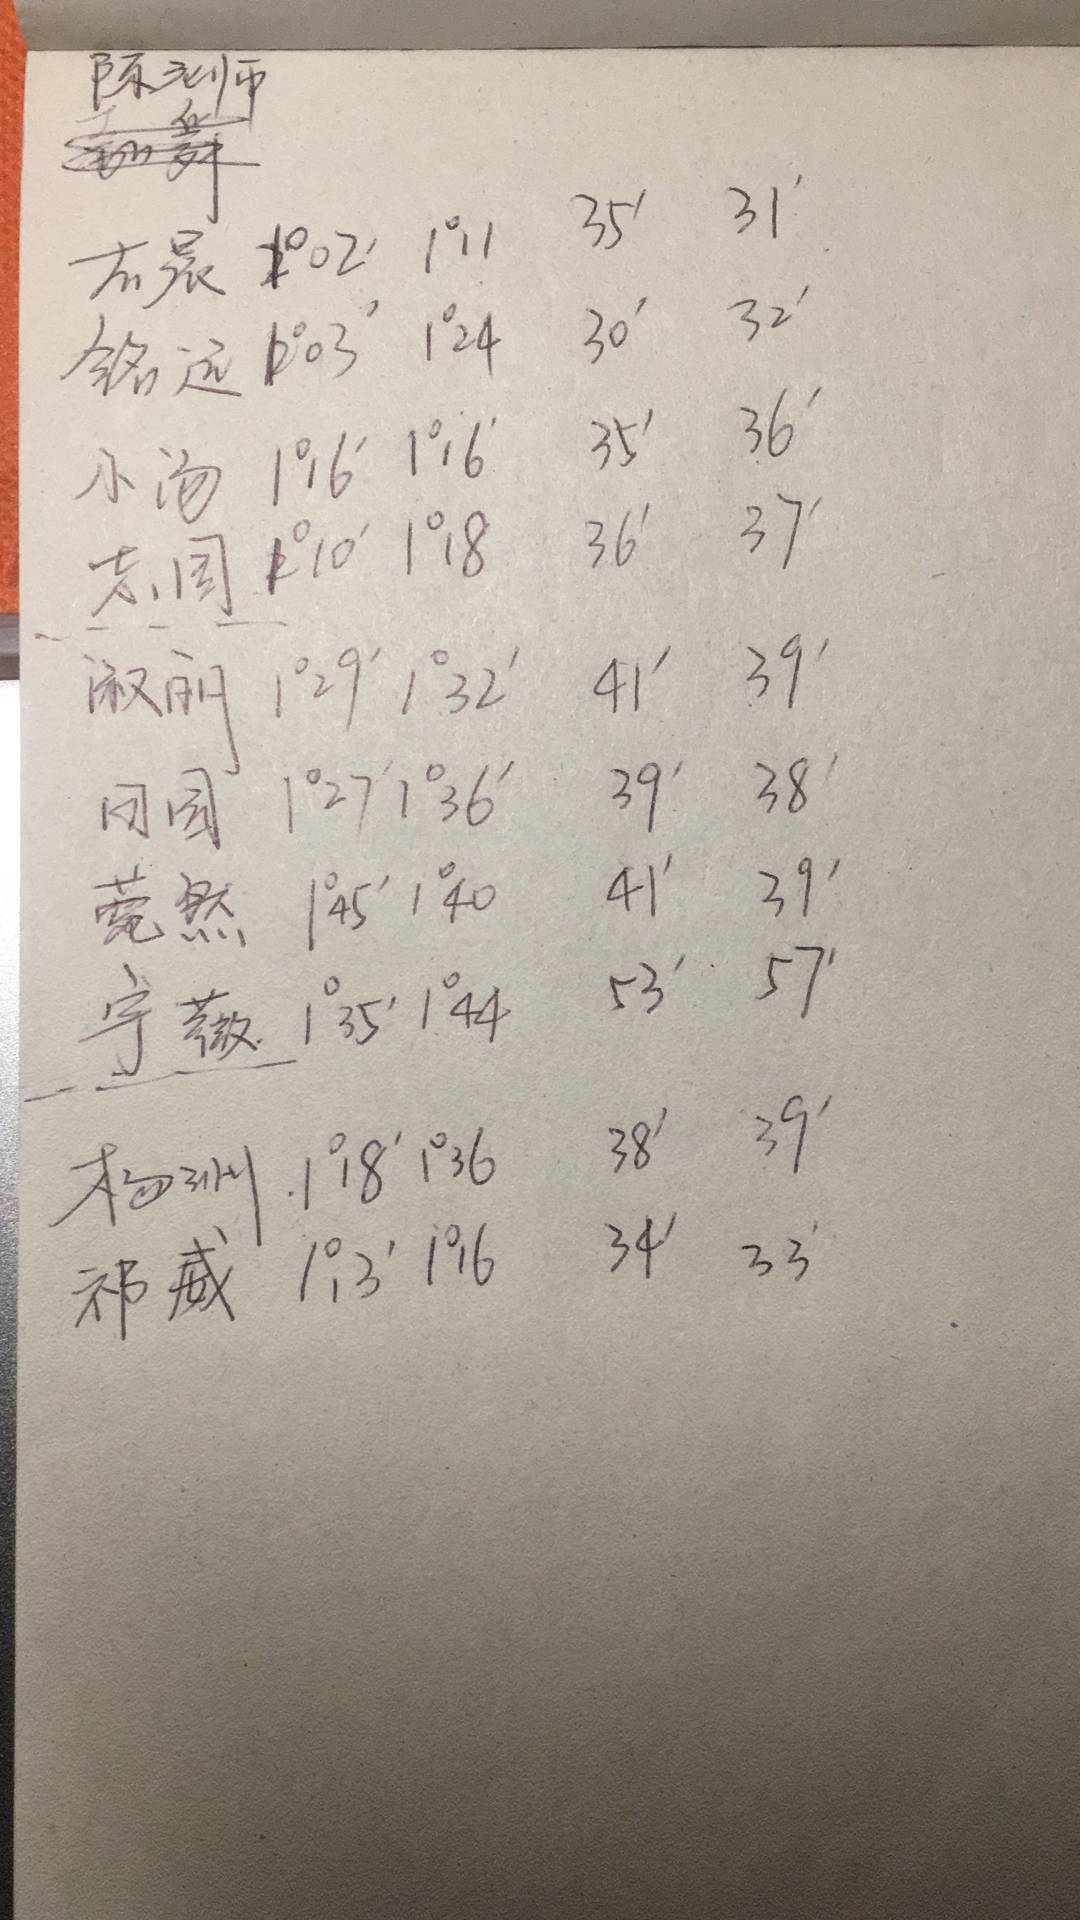 陈老师
志晨 1°02' 1°11 35' 31'
铭远 1°03' 1°24 30' 32'
小汤 1°16' 1°16' 35' 36'
志国 1°10' 1°18 36' 37'
淑丽 1°29' 1°32' 41' 39'
田园 1°27' 1°36' 39' 38'
菀然 1°45' 1°40 41' 39'
宇薇 1°35' 1°44 53' 57'
杨洲 1°18' 1°36 38' 39'
祁威 1°13' 1°16 34' 33'